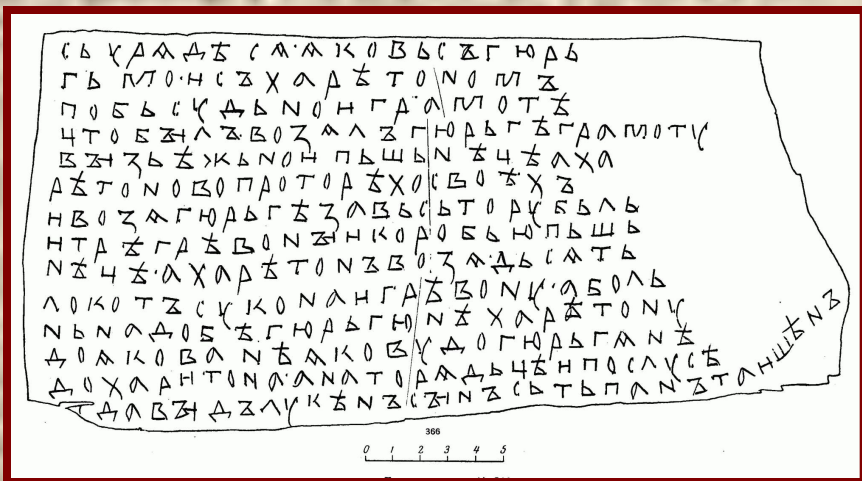 сьурѧдѣсѧ·ѧковьсъгюрь
гьмо·исъхарѣтономъ
побьсудьноиграмотѣ
чтобꙑлъ·возѧлъгюрьгѣграмоту
вꙑзьѣжьноипьшьнѣчѣаха
рѣтоновопроторѣхосвоѣхъ
ивозѧгюрьгѣзавьсьторубьль
итрѣгрѣвонꙑикоробьюпьшь
нѣчѣ·ахарѣтонъвозѧ·дьсѧть
локотъсуконаигрѣвону·аболь
ньнадобѣгюрьгюнѣхарѣтону
доѧкованѣѧковудогюрьгѧнѣ
дохаритона·анаторѧдьчѣипослусѣ
давꙑдълукѣнъсꙑнъсьтьпанътаишѣнъ
366
0 1 2 3 4 5